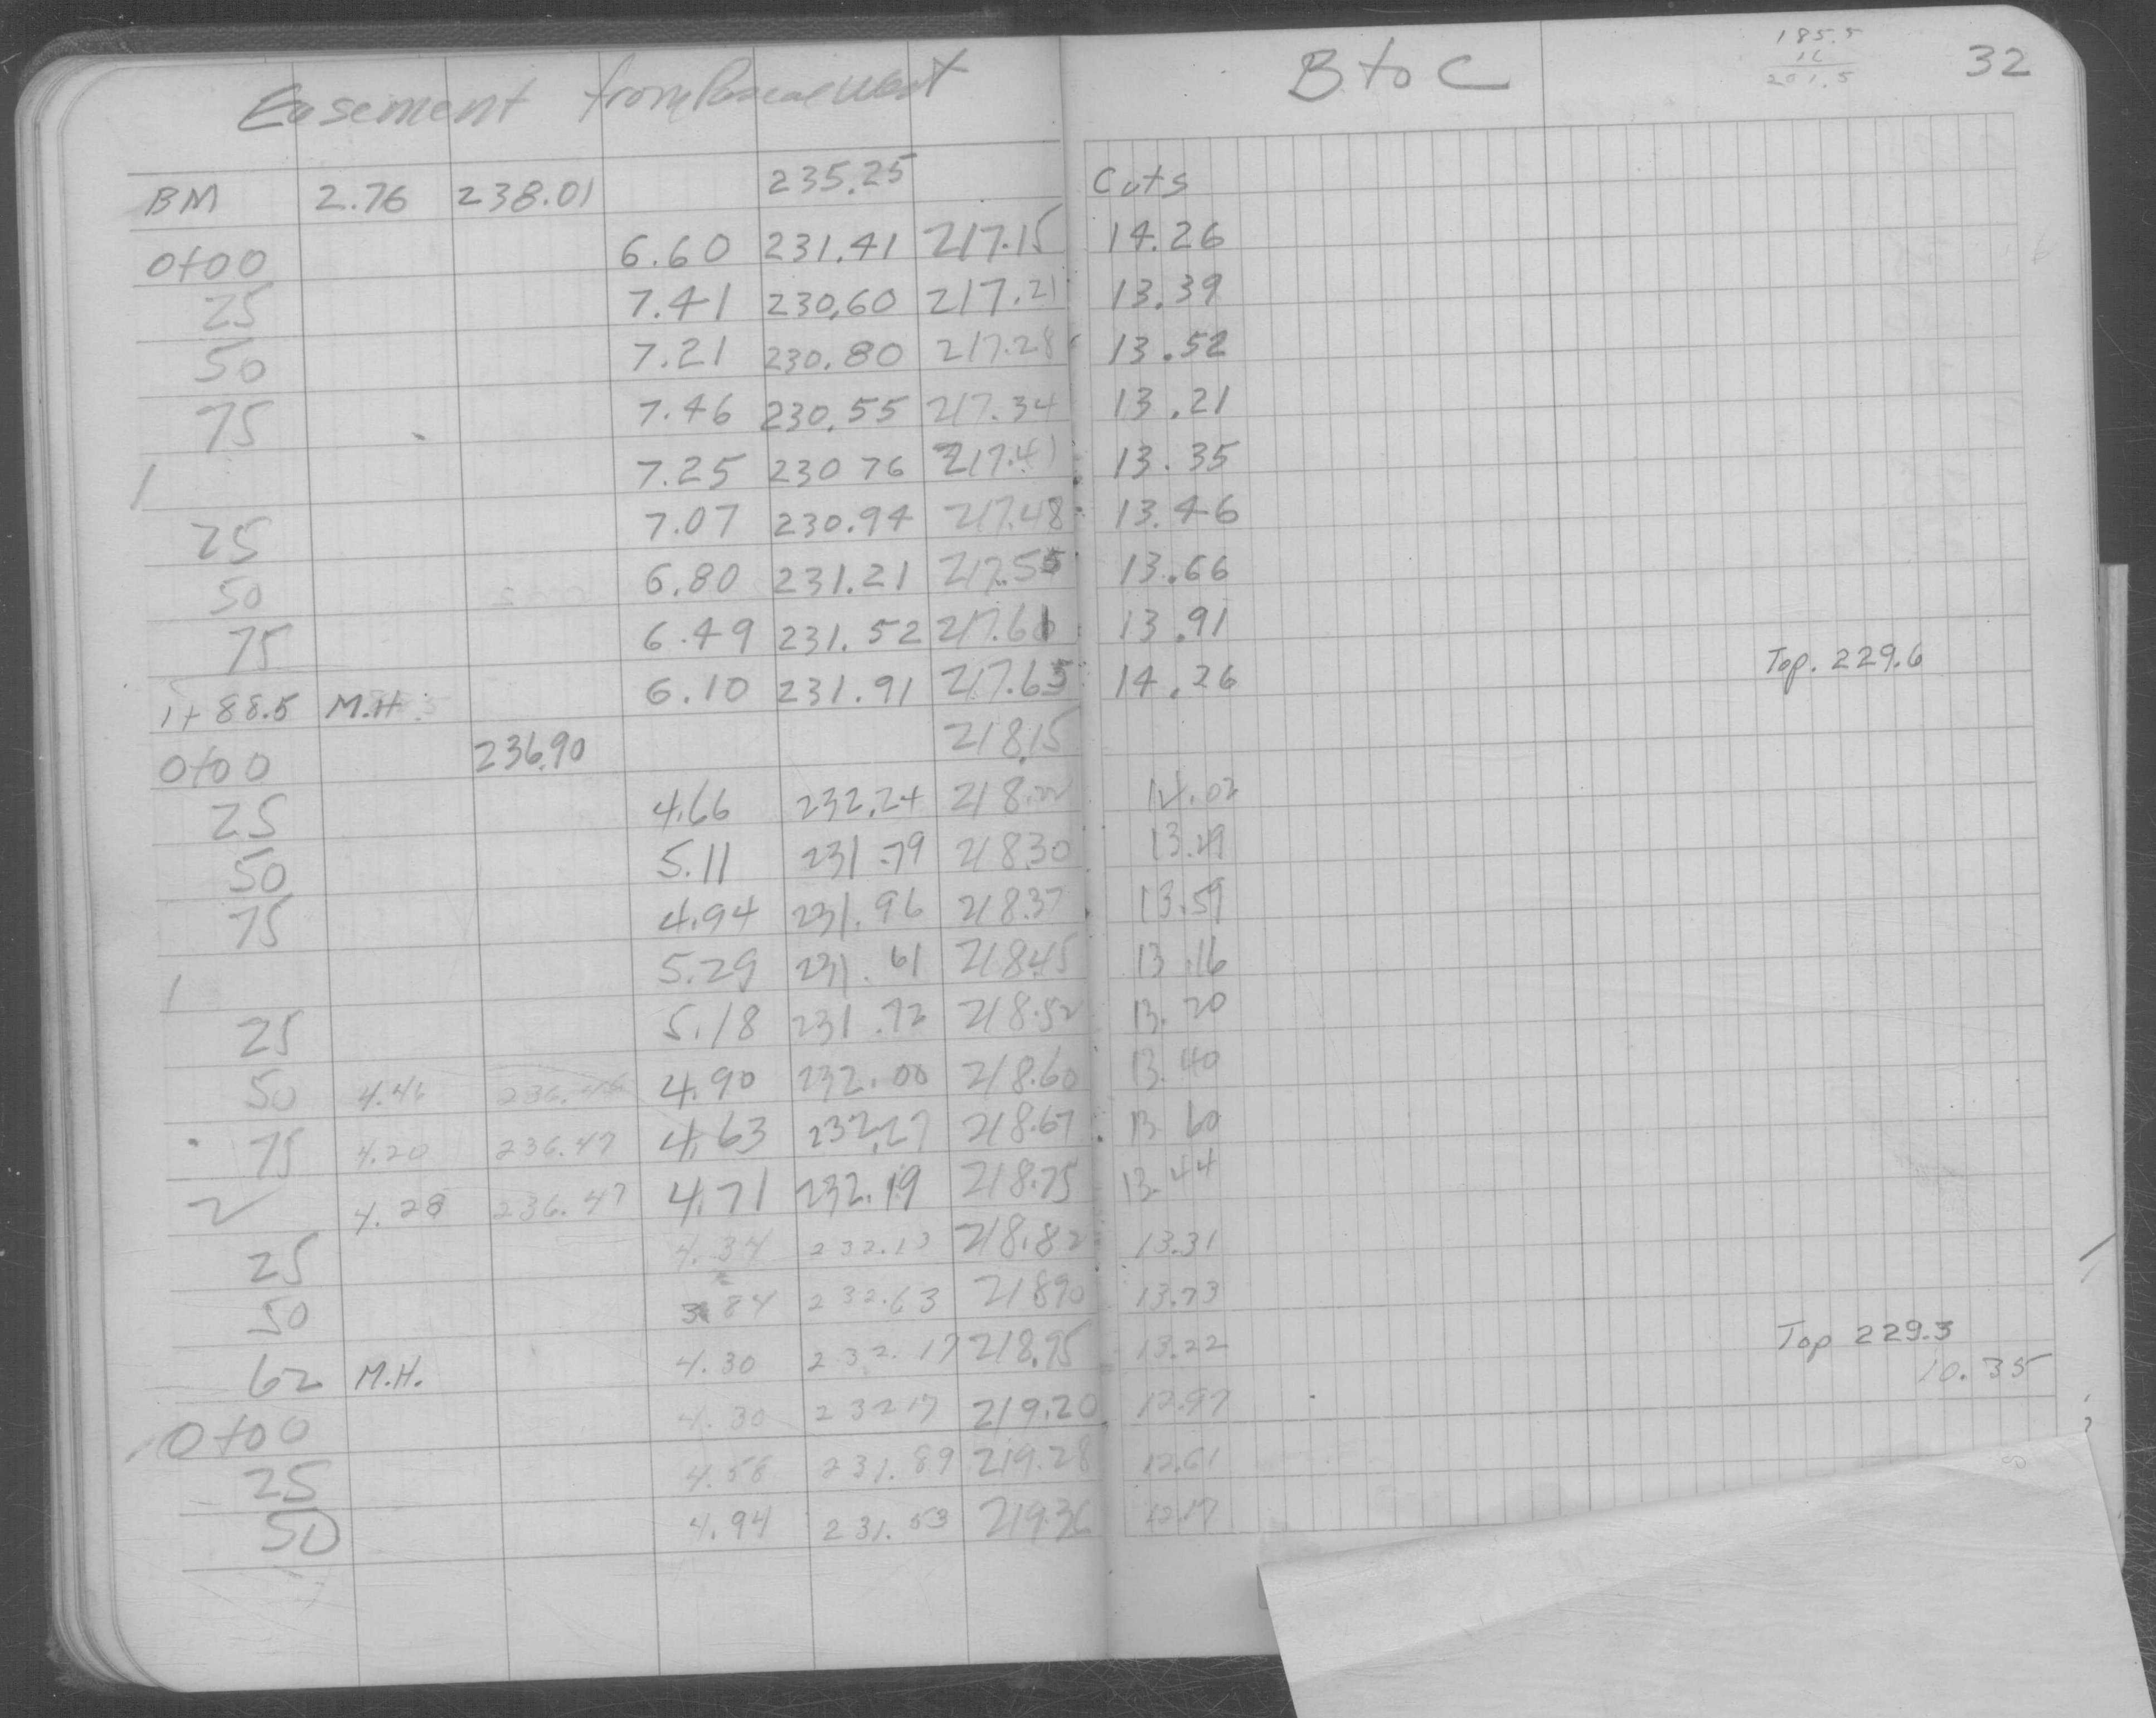 Easement from Pascal West B to C 32
185.5
16
201.5
BM 2.76 238.01 235.25 Cuts
0+00 6.60 231.41 217.15 14.26
25 7.41 230.60 217.21 13.39
50 7.21 230.80 217.28 13.52
75 7.46 230.55 217.34 13.21
1 7.25 230 76 217.41 13.35
25 7.07 230.94 217.48 13.46
50 6.80 231.21 217.55 13.66
75 6.49 231.52 217.61 13.91 Top. 229.6
1+88.5 M.H. 6.10 231.91 217.65 14.26
0+00 236.90 218.15
25 4.66 232.24 218.22 14.02
50 5.11 231.79 218.30 13.49
75 4.94 231.96 218.37 13.59
1 5.29 231.61 218.45 13.16
25 5.18 231.72 218.52 13.20
50 4.46 236.46 4.90 232.00 218.60 13.40
75 4.20 236.47 4.63 232.27 218.67 13 60
2 4.28 236.47 4.71 232.19 218.75 13.44
25 4.34 232.13 218.82 13.31
50 3.84 232.63 218.90 13.73
62 M.H. 4.30 232.17 218.95 13.22 Top 229.3
10.35
0+00 4.30 232 17 219.20 12.97
25 4.58 231.89 219.28 12.61
50 4.94 231.53 219.36 12.17